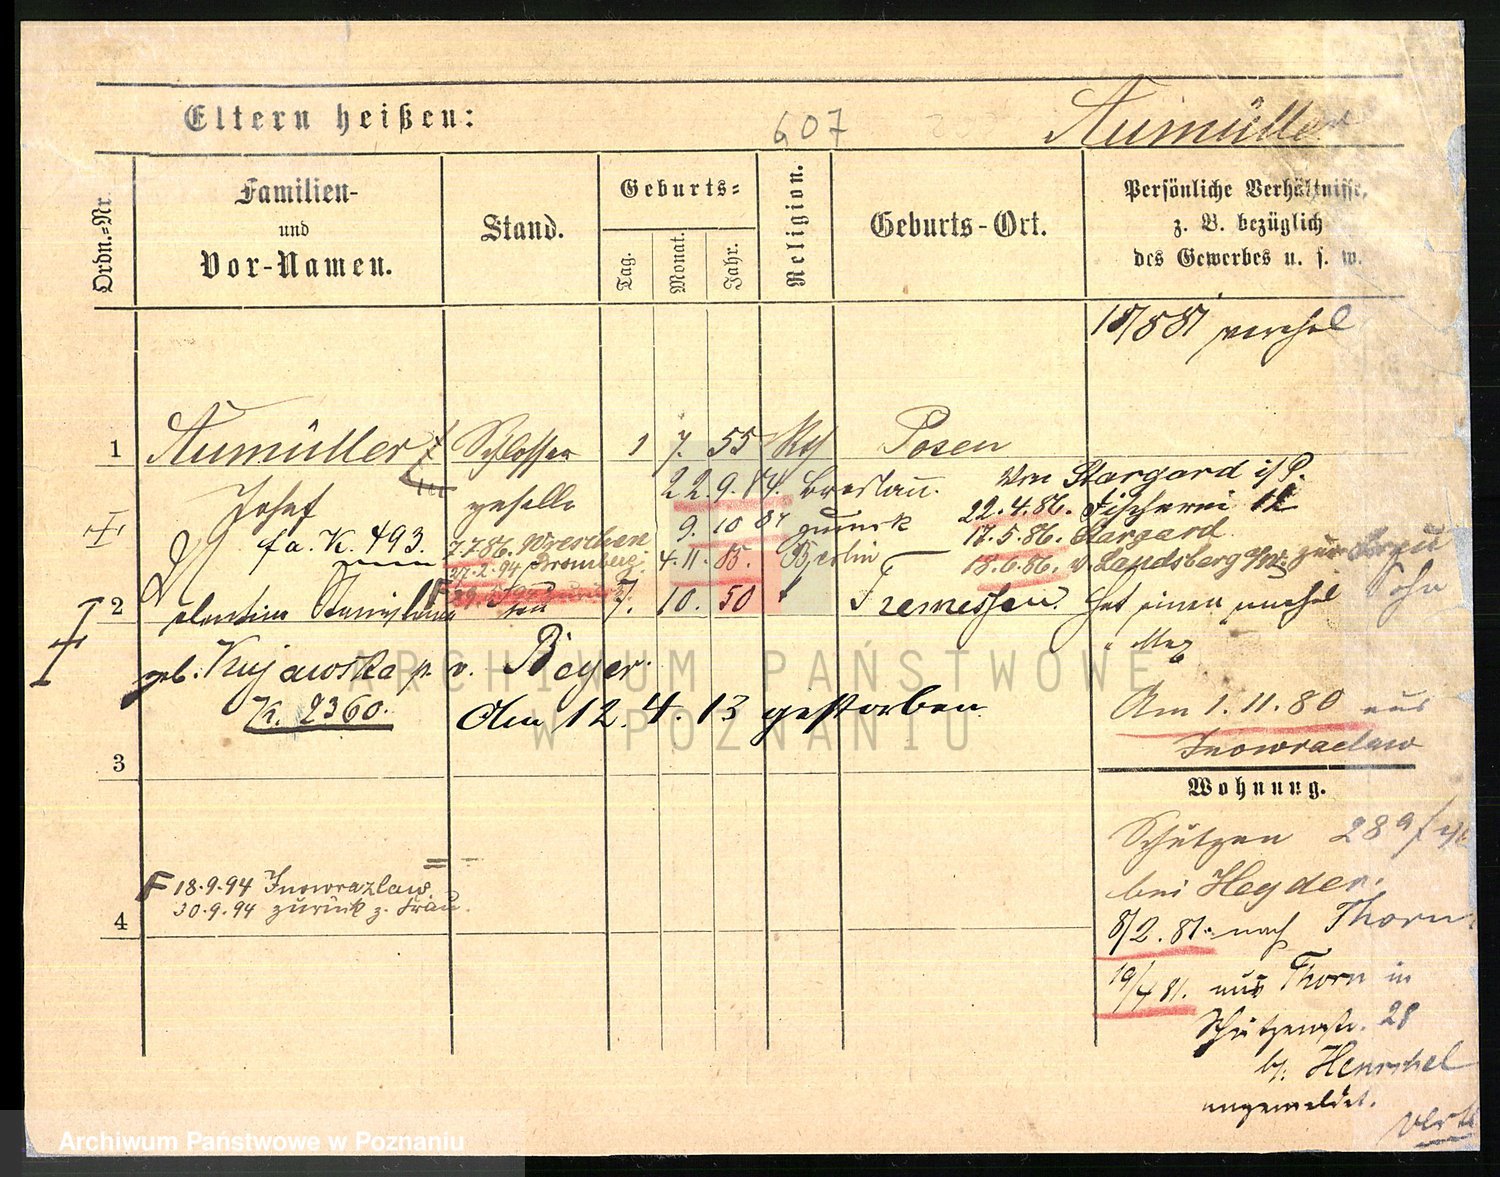 Eltern heißen:
607
Aumüller
Ordn.=Nr.
Familien-
und
Vor-Namen.
Stand.
Geburts=
Tag.
Monat.
Jahr.
Religion.
Geburts-Ort.
Persönliche Verhältnisse,
z. B. bezüglich
des Gewerbes u. s. w.
1 Aumüller Schlosser 1 7. 55 Posen
Josef geselle 22.9.84. Breslau. Von Stargard i/P.
22.4.86. Fischerei 12
9. 10 84 zurück 17.5.86. Stargard
fa. K. 493. 7.7.86. Wreschen
27.2.94 Bromberg. 4.11.85. Berlin 18.6.86. v. Landsberg
2 Stanislawa 7. 10. 50 Tremessen. Hat einen Sohn
geb. Kujawska v. Beyer.
K. 2360.
Am 12.4.13 gestorben
Am 1.11.80 aus
Inowraclaw
3
Wohnung.
Schützen 28
bei Heyder.
8/2.81. nach Thorn
19/4 81. aus Thorn in
Schützenstr. 28
b. Henschel
angemeldet.
F 18.9.94 Inowrazlaw.
30.9.94 zurück z. Frau.
4
ARCHIWUM PAŃSTWOWE
W POZNANIU
Archiwum Państwowe w Poznaniu